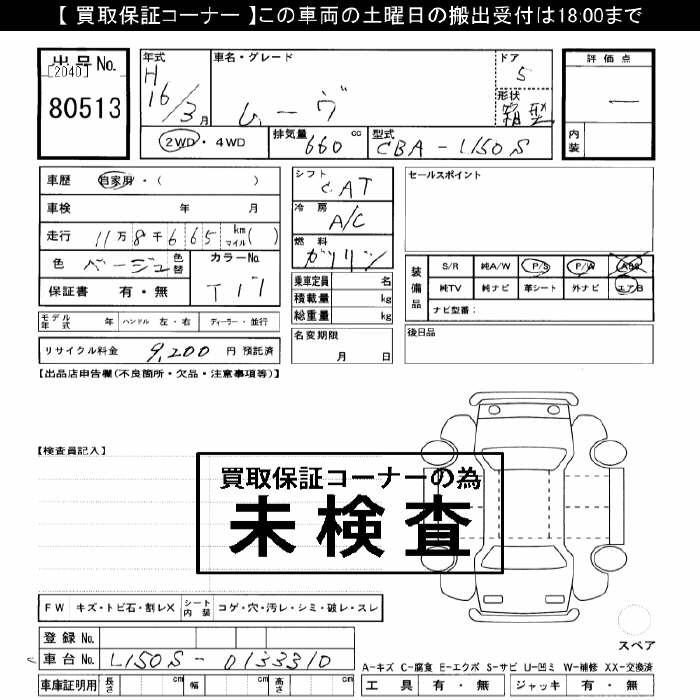 【 買取保証コーナー 】この車両の土曜日の搬出受付は18:00まで
出品No.
[2040]
80513
年式
H
16/3月
車名・グレード
ムーヴ
ドア
5
形状
箱型
評価点
―
内装
2WD・4WD
排気量
660 cc
型式
CBA - L150S
車歴 自家用・( )
車検 年 月
走行 11万8千665 km マイル( )
色 ベージュ 色替
カラーNo.
T17
保証書 有・無
シフト
CAT
冷房
A/C
燃料
ガソリン
乗車定員 名
積載量 kg
総重量 kg
セールスポイント
装備品
S/R 純A/W P/S P/W ABS
純TV 純ナビ 革シート 外ナビ エアB
ナビ型番:
モデル年式 年 ハンドル 左・右 ディーラー・並行
リサイクル料金 9,200 円 預託済
名変期限
月 日
後日品
【出品店申告欄(不良箇所・欠品・注意事項等)】
【検査員記入】
買取保証コーナーの為
未検査
FW キズ・トビ石・割レX シート内装 コゲ・穴・汚レ・シミ・破レ・スレ
登録No.
車台No. L150S - 0133310
車庫証明用 長さ cm 幅 cm 高さ cm
スペア
A-キズ C-腐食 E-エクボ S-サビ U-凹ミ W-補修 XX-交換済
工具 有・無 ジャッキ 有・無